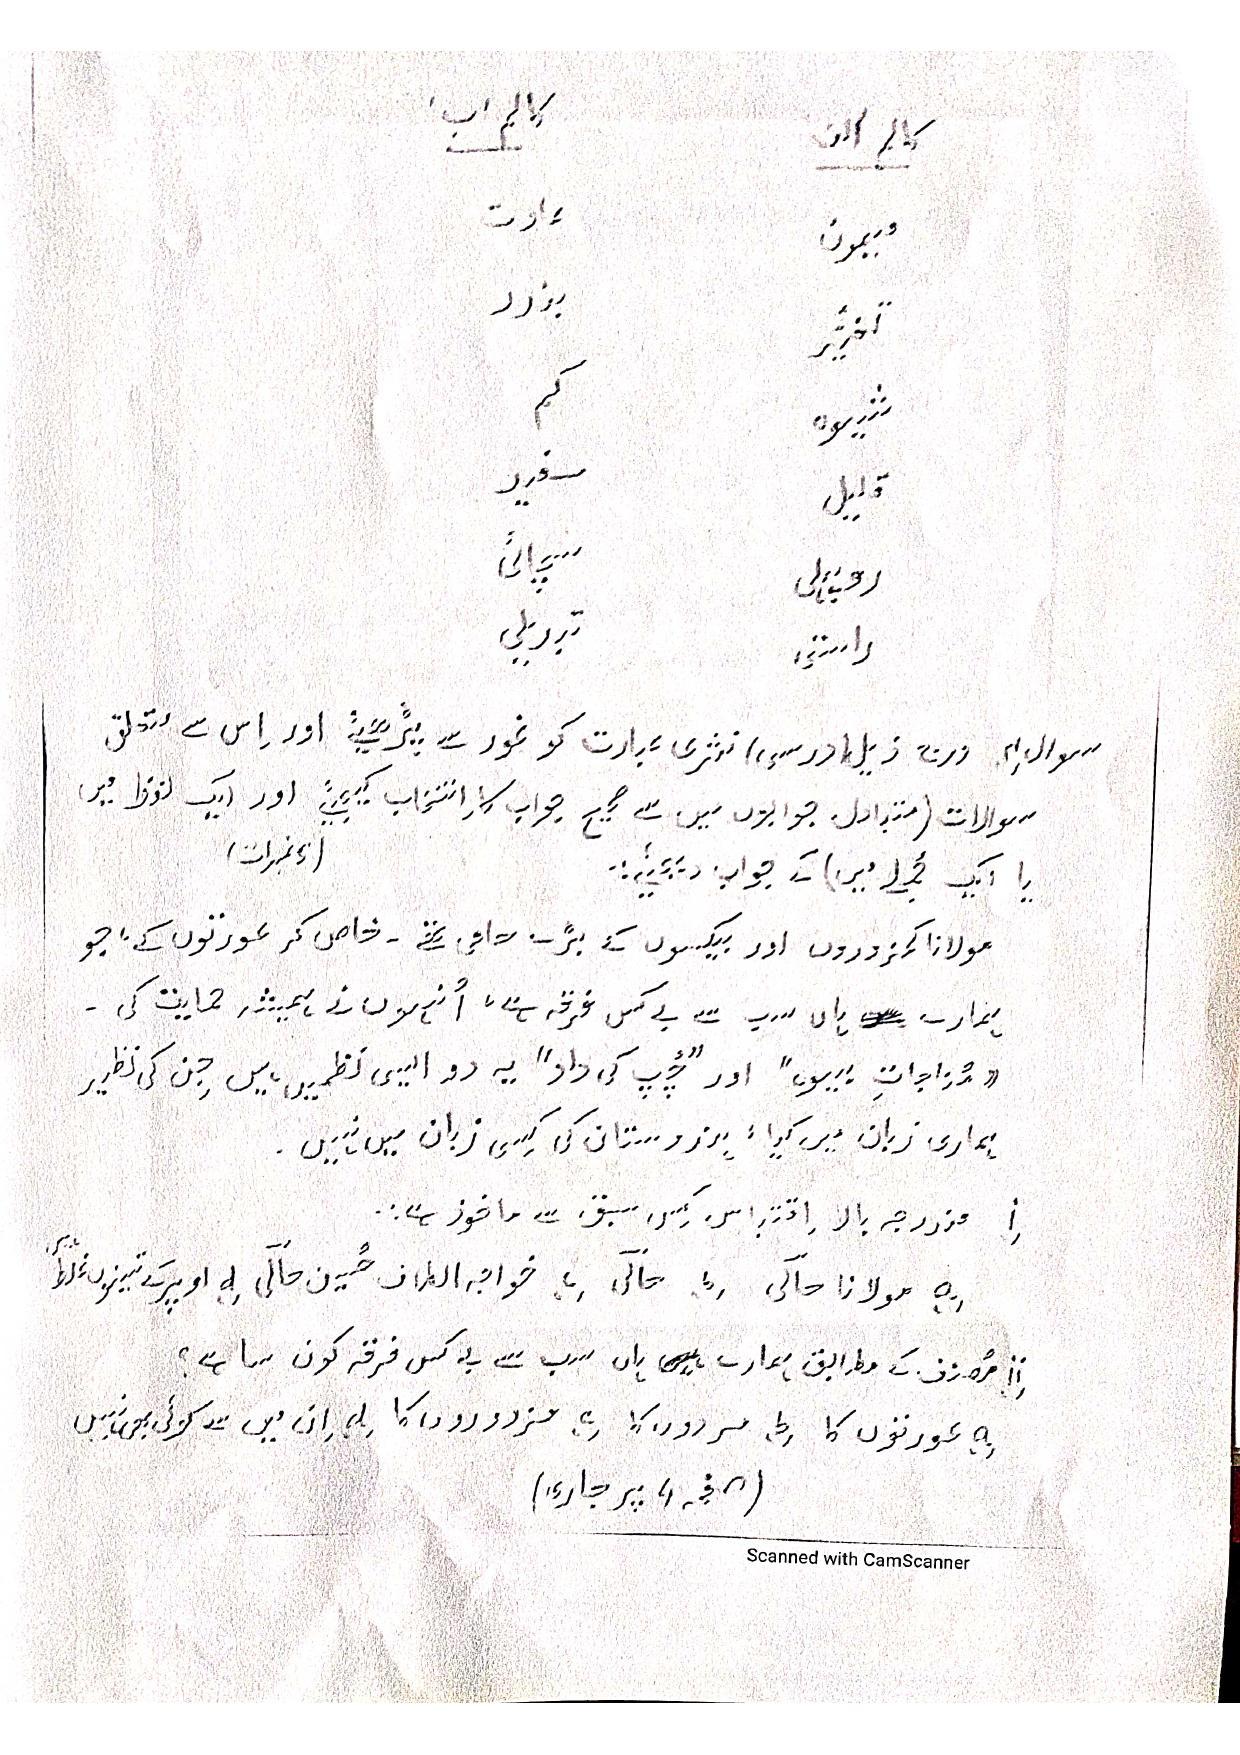 کالم الف کالم 'ب'
میمون عادت
تغیّر بندر
شیوہ کم
قلیل سفید
روپہلی سچائی
راستی تبدیلی
درج ذیل (درسی) نثری عبارت کو غور سے پڑھیے اور اِس سے متعلق
سوالات (متبادل جوابوں میں سے صحیح جواب کا اِنتخاب کیجیے اور ایک لفظ میں
یا ایک جُملے میں) کے جواب دیجیے:۔
مولانا کمزوروں اور بیکسوں کے بڑے حامی تھے۔ خاص کر عورتوں کے، جو
ہمارے ہاں سب سے بے کس فرقہ ہے، اُنہوں نے ہمیشہ حمایت کی۔
"مُناجاتِ بیوہ" اور "چُپ کی داد" یہ دو ایسی نظمیں ہیں جِن کی نظیر
ہماری زبان میں کیا، ہندوستان کی کِسی زبان میں نہیں۔
i مندرجہ بالا اِقتباس کِس سبق سے ماخوذ ہے:۔
مولانا حالؔی حالؔی خواجہ الطاف حُسین حالؔی اوپر کے تینوں غلط ہیں
ii مُصنف کے مطابق ہمارے ہاں سب سے بے کس فرقہ کون سا ہے؟
عورتوں کا مردوں کا مزدوروں کا اِن میں سے کوئی بھی نہیں
(صفحہ 4 پر جاری)
Scanned with CamScanner